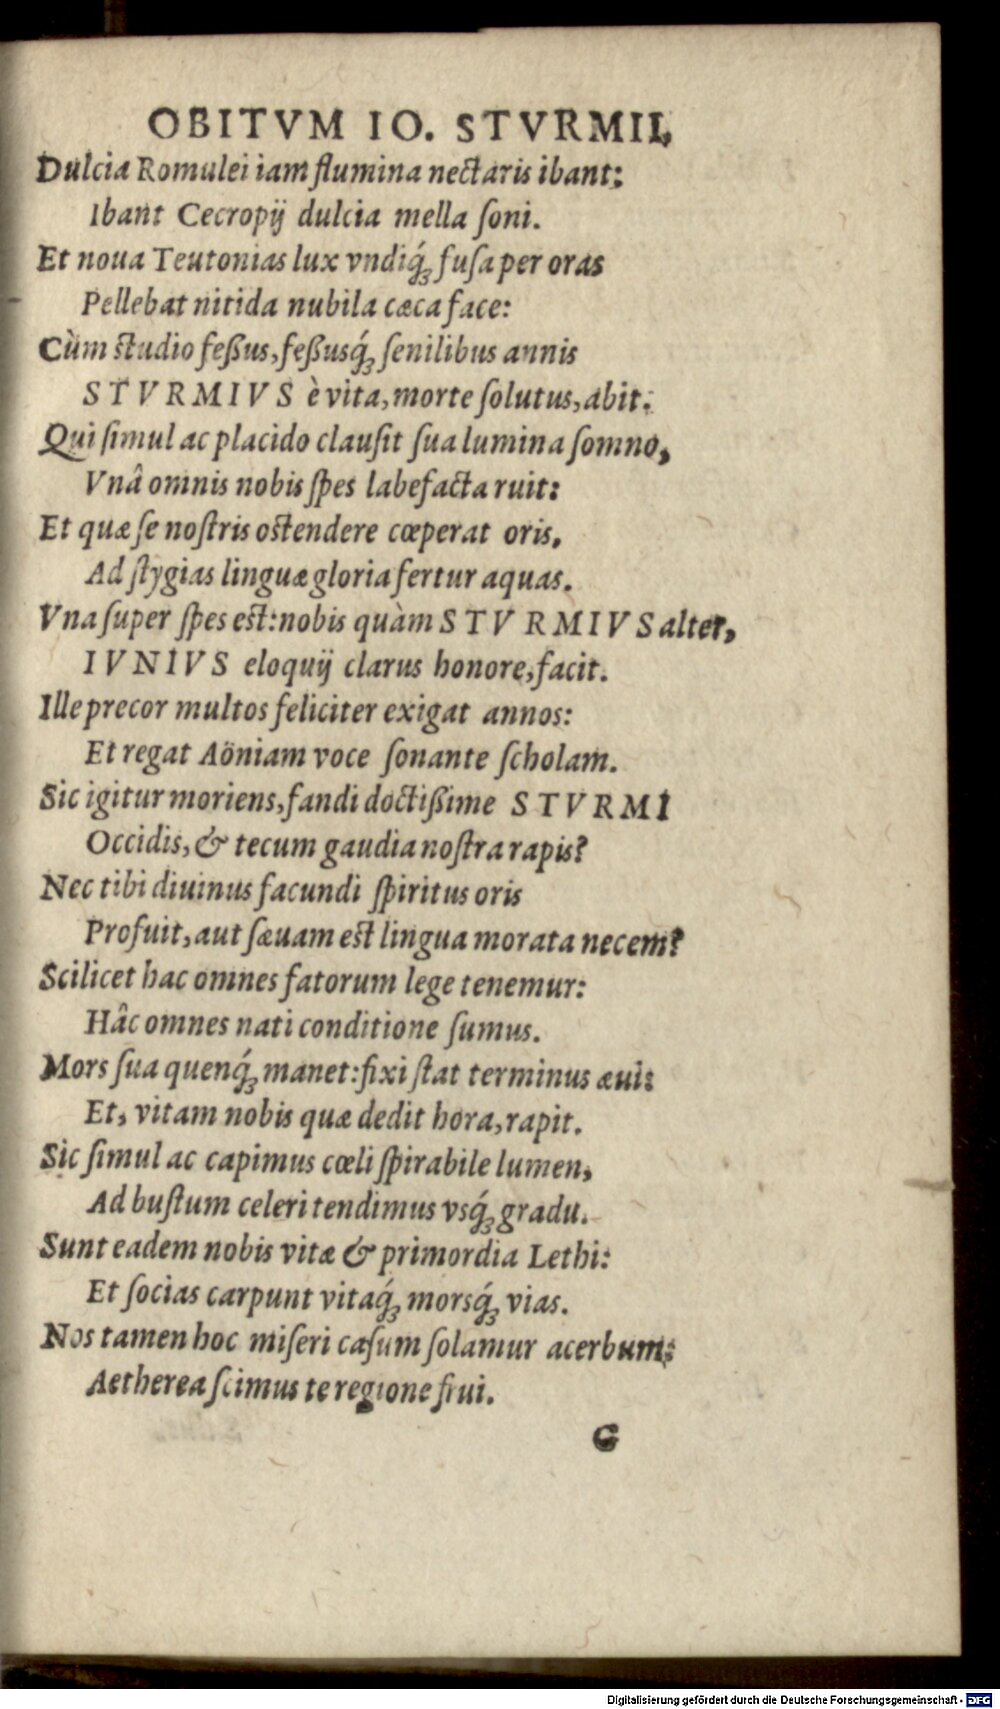 OBITVM IO. STVRMII,
Dulcia Romulei iam flumina nectaris ibant:
Ibant Cecropij dulcia mella ſoni.
Et noua Teutonias lux vndiq́ꝫ fuſa per oras
Pellebat nitida nubila cæca face:
Cùm ſtudio feßus, feßusq́ꝫ ſenilibus annis
STVRMIVS è vita, morte ſolutus, abit.
Qui ſimul ac placido clauſit ſua lumina ſomno,
Vnâ omnis nobis ſpes labefacta ruit:
Et quæ ſe noſtris oſtendere cœperat oris,
Ad ſtygias linguæ gloria fertur aquas.
Vna ſuper ſpes eſt: nobis quàm STVRMIVS alter,
IVNIVS eloquij clarus honore, facit.
Ille precor multos feliciter exigat annos:
Et regat Aöniam voce ſonante ſcholam.
Sic igitur moriens, fandi doctißime STVRMI
Occidis, & tecum gaudia noſtra rapis?
Nec tibi diuinus facundi ſpiritus oris
Profuit, aut ſæuam eſt lingua morata necem?
Scilicet hac omnes fatorum lege tenemur:
Hâc omnes nati conditione ſumus.
Mors ſua quenq́ꝫ manet: fixi ſtat terminus æui:
Et, vitam nobis quæ dedit hora, rapit.
Sic ſimul ac capimus cœli ſpirabile lumen,
Ad buſtum celeri tendimus vsq́ꝫ gradu.
Sunt eadem nobis vitæ & primordia Lethi:
Et ſocias carpunt vitaq́ꝫ morsq́ꝫ vias.
Nos tamen hoc miſeri caſum ſolamur acerbum:
Aetherea ſcimus te regione frui.
G
Digitalisierung gefördert durch die Deutsche Forschungsgemeinschaft - DFG